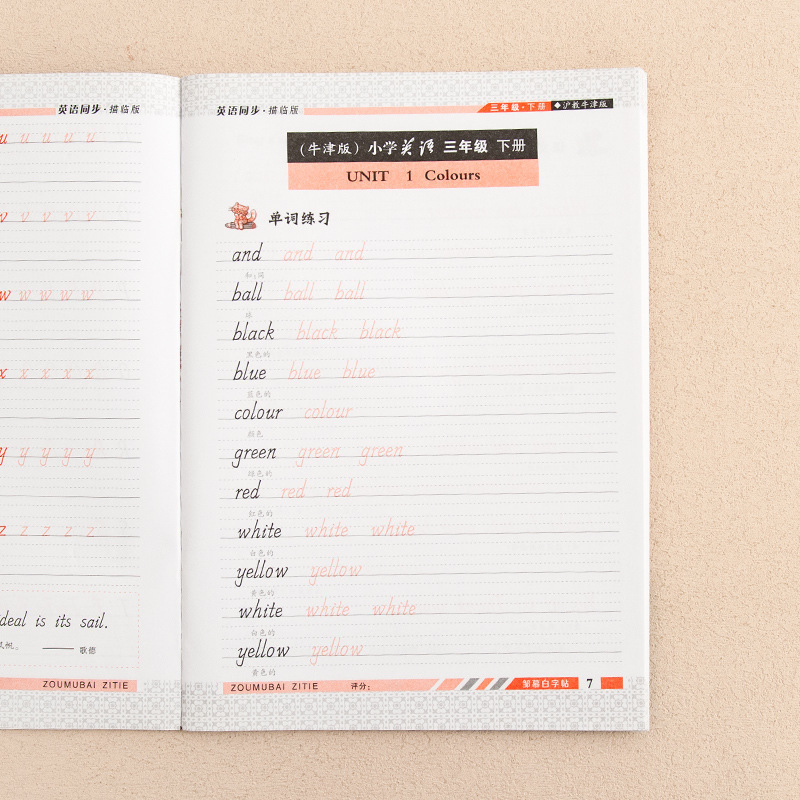 英语同步·描临版
u u u u u
v v v v v
w w w w w
x x x x x
y y y y y
z z z z z
deal is its sail.
帆。 —— 歌德
ZOUMUBAI ZITIE
英语同步·描临版 三年级·下册 ◆沪教牛津版
(牛津版) 小学英语 三年级 下册
UNIT 1 Colours
单词练习
and and and
和;同
ball ball ball
球
black black black
黑色的
blue blue blue
蓝色的
colour colour
颜色
green green green
绿色的
red red red
红色的
white white white
白色的
yellow yellow
黄色的
white white white
白色的
yellow yellow
黄色的
ZOUMUBAI ZITIE 评分: 邹慕白字帖 7